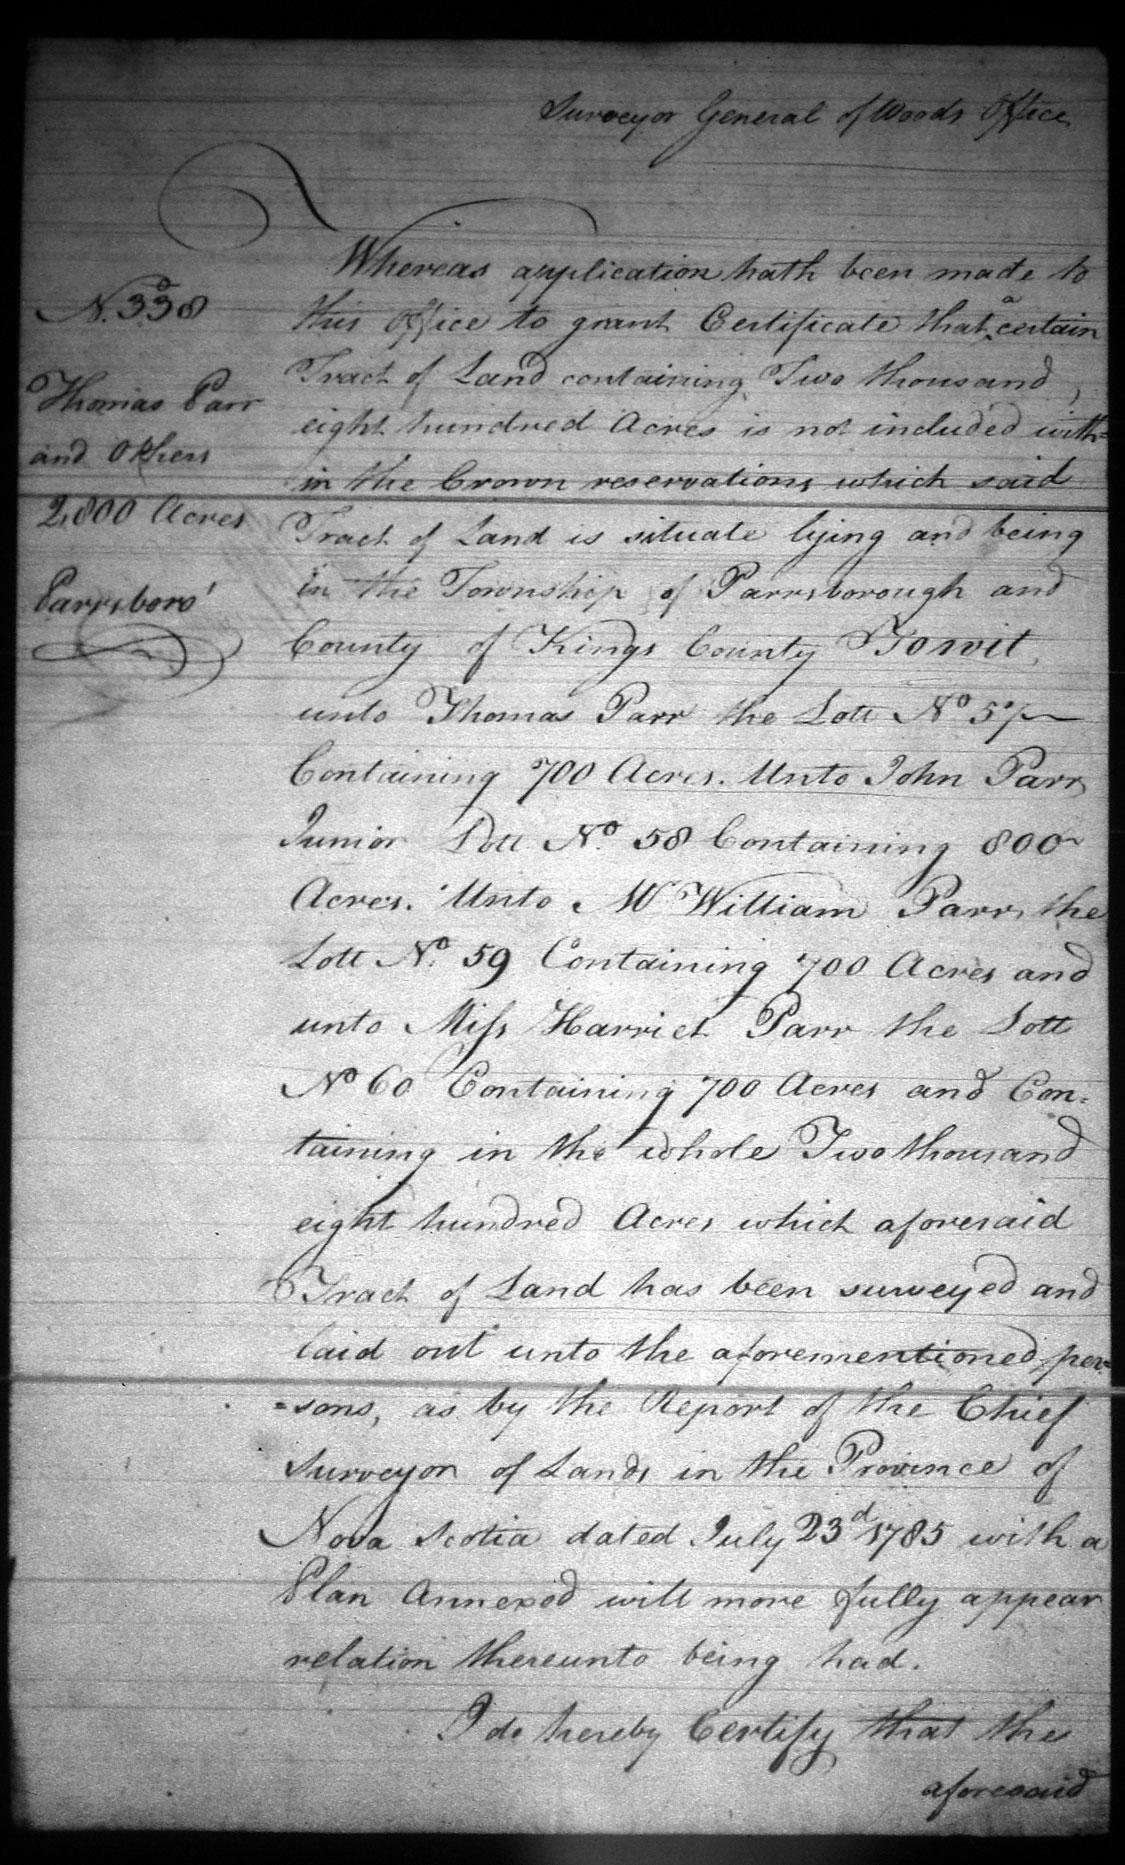 Surveyor General of Woods Office
Whereas application hath been made to
this Office to grant Certificate that a certain
Tract of Land containing Two thousand,
eight hundred Acres is not included with=
in the Crown reservations which said
Tract of Land is situate lying and being
in the Township of Parrsborough and
County of Kings County Towit,
unto Thomas Parr the Lott No 57
Containing 700 Acres. Unto John Parr
Junior Lott No. 58 Containing 800
Acres. Unto Mr William Parr, the
Lott No. 59 Containing 700 Acres and
unto Miss Harriet Parr the Lott
No 60 Containing 700 Acres and Con=
taining in the whole Two thousand
eight hundred Acres which aforesaid
Tract of Land has been surveyed and
laid out unto the aforementioned per=
=sons, as by the Report of the Chief
Surveyor of Lands in the Province of
Nova Scotia dated July 23d 1785 with a
Plan Annexed will more fully appear
relation thereunto being had.
I do hereby Certify that the
aforesaid
No. 338
Thomas Parr
and Others
2,800 Acres
Parrsboro'